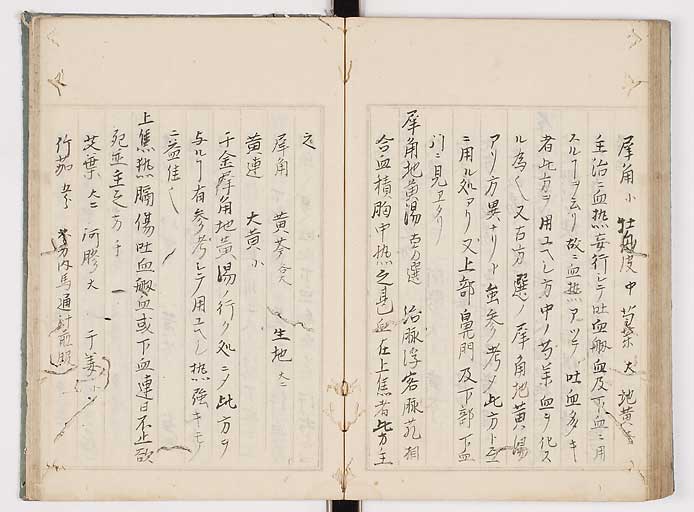 犀角小 牡丹皮中 芍薬大 地黄
主治ニ血热妄行シテ吐血衂血及下血ニ用
スルヿヲ云リ故ニ血热アツテ吐血多キ
者此方ヲ用ユヘシ方中ノ芍薬血ヲ化ス
ル為ヘ又百方選ノ犀角地黄湯
アリ方異ナリト虽参考シ此方ト
ニ用ル処アリ又上部鼻門及下部下血
門ニ見ヱタリ
犀角地黄湯 百方選 治脉浮客脉芤相
合血積胸中热之甚血在上焦者此方主
之
犀角 黄芩 生地大
黄連 大黄小
千金犀角地黄湯ノ行ク処ニメ此方ヲ
与ルヿ有参考シテ用ユヘシ热強キモノ
ニ益佳シ
上焦热膈傷吐血衂血或下血連日不止欲
死並主之方
艾葉大 阿膠大 干姜小
竹茹 右 内馬通汁煎服